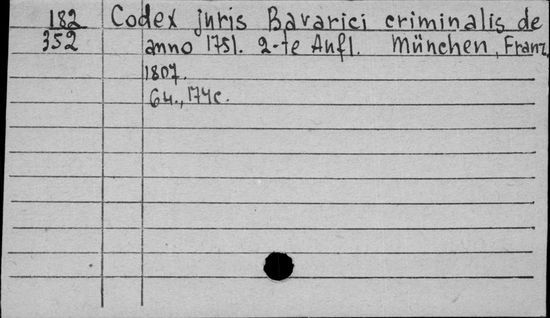 182 Codex juris Bavarici criminalis de
352 anno 1751. 2-te Aufl. München, Franz,
1807.
64., 174c.